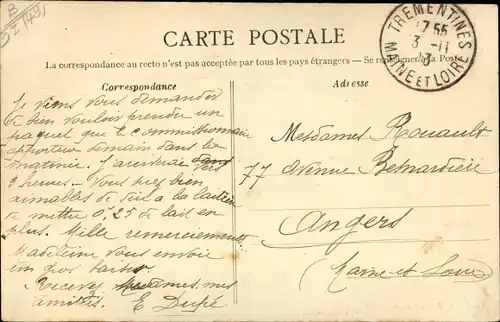 B
I (49)
CARTE POSTALE
La correspondance au recto n'est pas acceptée par tous les pays étrangers — Se renseigner à la Poste
TREMENTINES
17 55
3 - 11
MAINE ET LOIRE
Correspondance
Adresse
Je viens vous demander
de bien vouloir prendre un
paquet que le commissionnaire
apportera demain dans la
matinée. J'arriverai vers
2 heures — Vous serez bien
aimables de dire à la laitière
de mettre 0,25 de lait en
plus. Mille remerciements
Madeleine vous envoie
un gros baiser
Recevez Mesdames, mes
amitiés. E Dupé
Mesdames Rouault
77 Avenue Besnardière
Angers
Maine-et-Loire